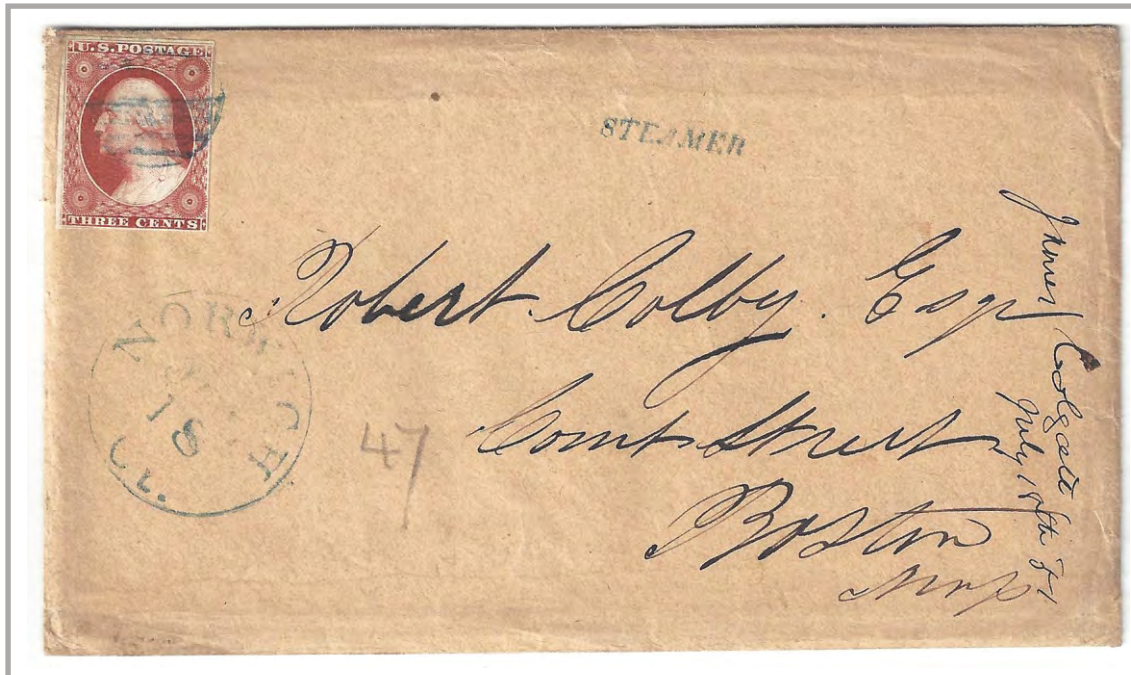 U.S. POSTAGE
THREE CENTS
STEAMER
NORWICH
18
CT.
47
Robert Colby. Esq
Court Street
Boston
Mass
James Colgate
July